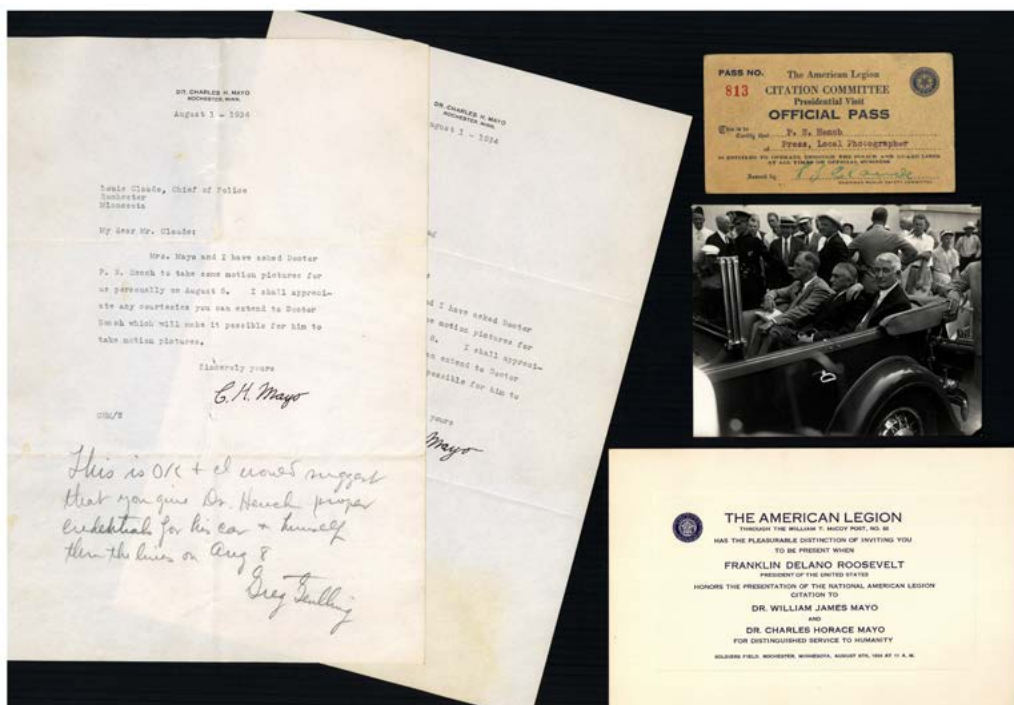 DR. CHARLES H. MAYO
ROCHESTER, MINN.
August 1 - 1934
Louis Claude, Chief of Police
Rochester
Minnesota
My dear Mr. Claude:
Mrs. Mayo and I have asked Doctor
P. S. Hench to take some motion pictures for
us personally on August 8. I shall appreci-
ate any courtesies you can extend to Doctor
Hench which will make it possible for him to
take motion pictures.
Sincerely yours
C. H. Mayo
CHM/
This is OK + I would suggest
that you give Dr. Hench proper
credentials for his car + himself
thru the lines on Aug 8
Greg
DR. CHARLES H. MAYO
ROCHESTER, MINN.
ugust 1 - 1934
d I have asked Doctor
me motion pictures for
8. I shall appreci-
an extend to Doctor
possible for him to
yours
Mayo
PASS NO.
813
The American Legion
CITATION COMMITTEE
Presidential Visit
OFFICIAL PASS
This is to
Certify that P. S. Hench
of Press, Local Photographer
IS ENTITLED TO OPERATE THROUGH THE POLICE AND GUARD LINES
AT ALL TIMES ON OFFICIAL BUSINESS
Issued by
THE AMERICAN LEGION
THROUGH THE WILLIAM T. McCOY POST, NO. 92
HAS THE PLEASURABLE DISTINCTION OF INVITING YOU
TO BE PRESENT WHEN
FRANKLIN DELANO ROOSEVELT
PRESIDENT OF THE UNITED STATES
HONORS THE PRESENTATION OF THE NATIONAL AMERICAN LEGION
CITATION TO
DR. WILLIAM JAMES MAYO
AND
DR. CHARLES HORACE MAYO
FOR DISTINGUISHED SERVICE TO HUMANITY
SOLDIERS FIELD, ROCHESTER, MINNESOTA, AUGUST 8TH, 1934 AT 11 A. M.